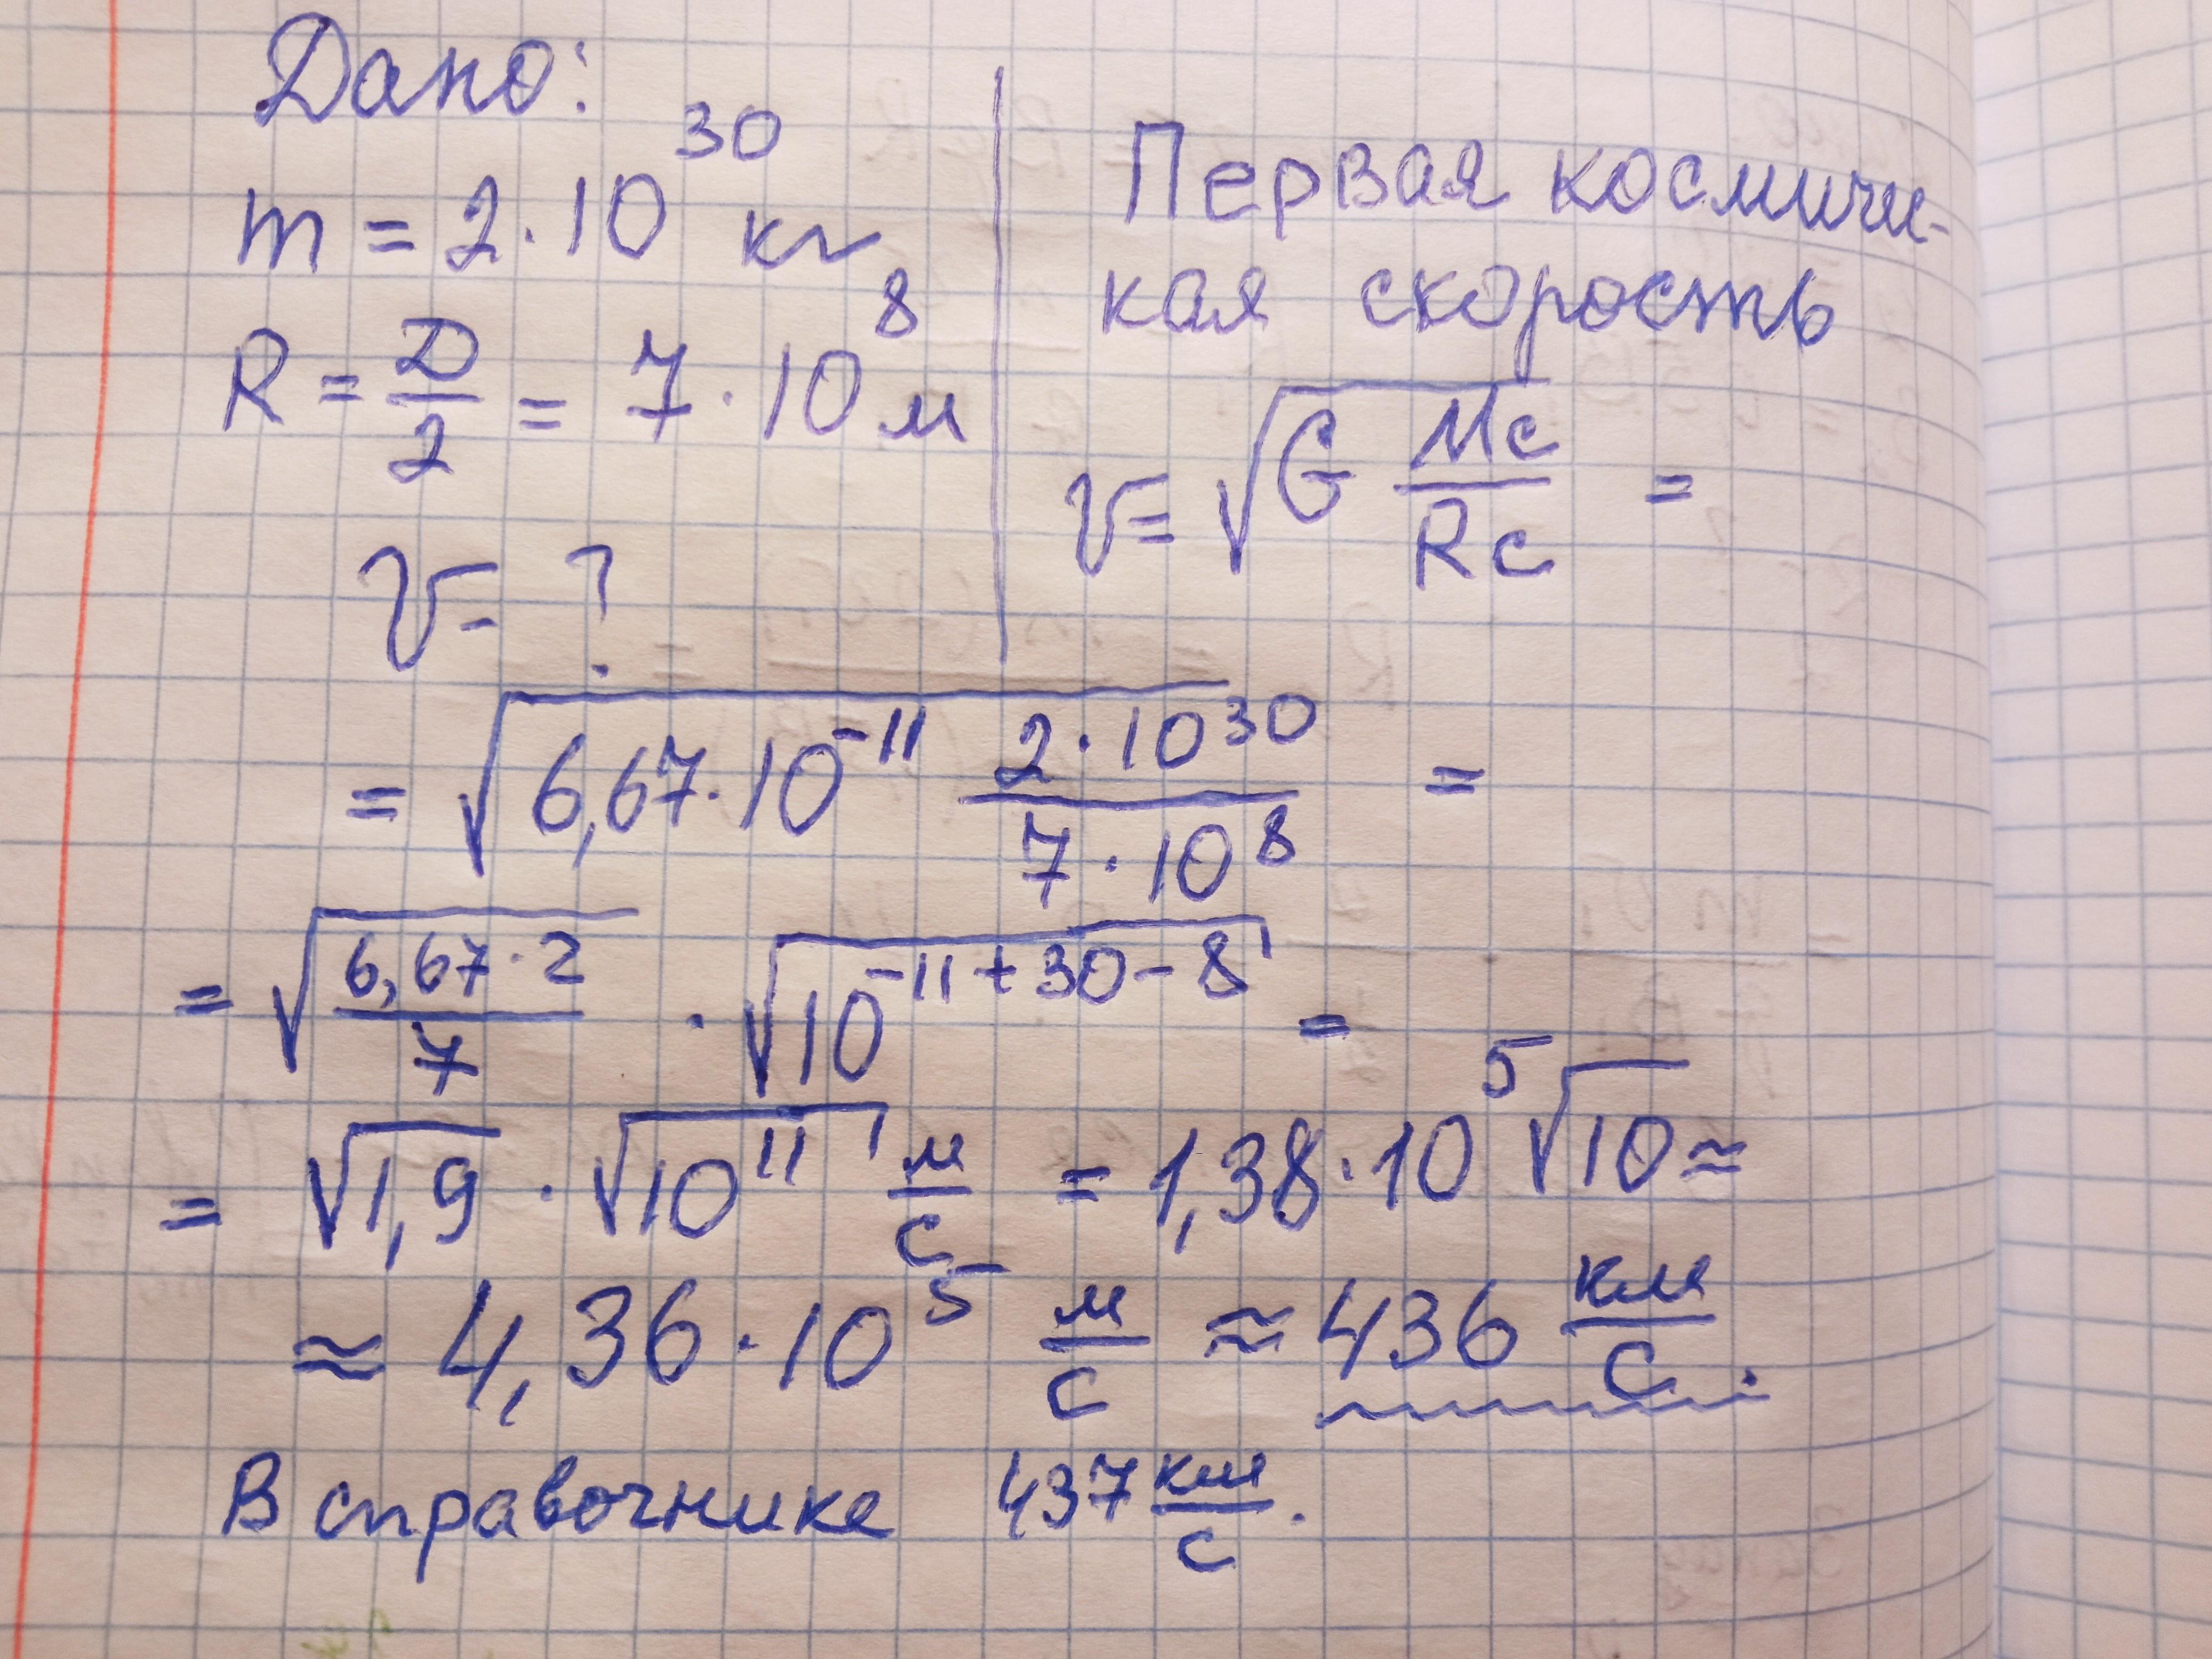 Дано:
m = 2·10³⁰ кг
R = Д/2 = 7·10⁸ м
V = ?
Первая космичи-
кая скорость
V = √(G Mc/Rc) =
= √(6,67·10⁻¹¹ 2·10³⁰/7·10⁸) =
= √(6,67·2/7) · √(10⁻¹¹⁺³⁰⁻⁸) =
= √1,9 · √10¹¹ м/с = 1,38·10⁵ √10 ≈
≈ 4,36·10⁵ м/с ≈ 436 км/с.
В справочнике 437 км/с.